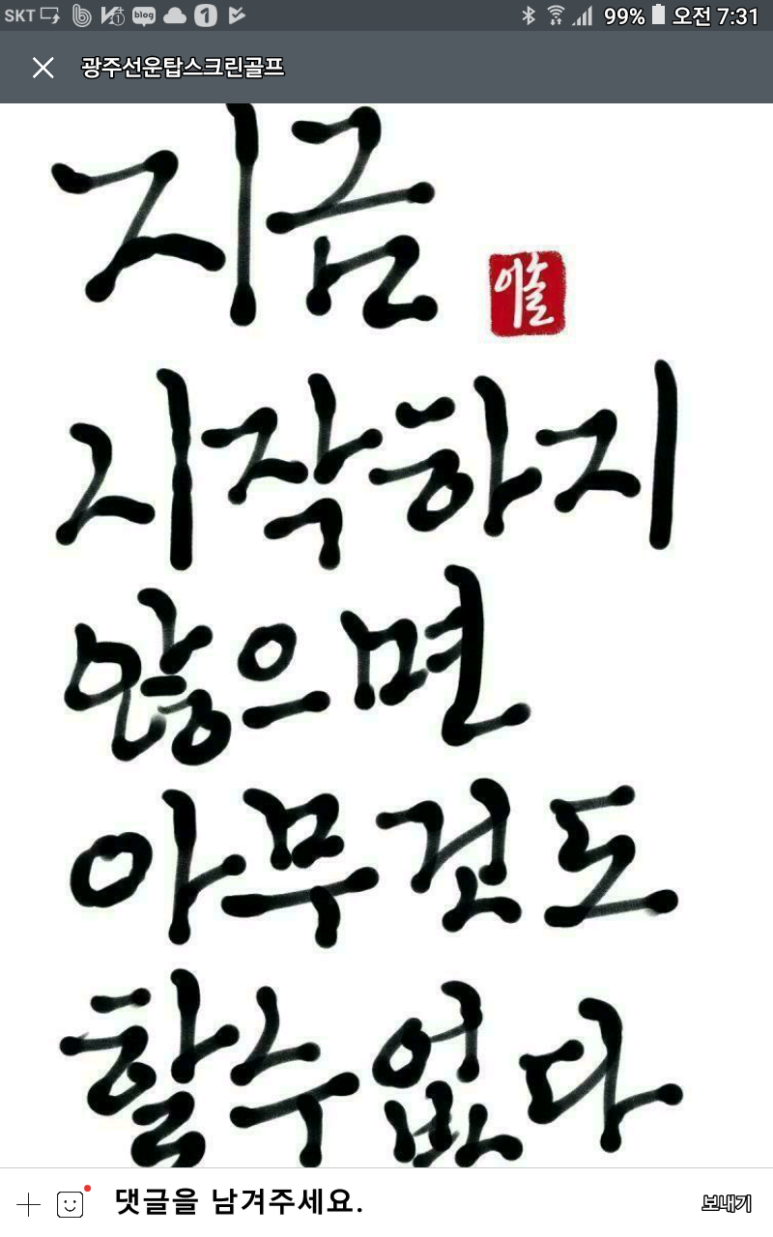 SKT blog 1 99% 오전 7:31
광주선운탑스크린골프
지금
이솔
시작하지
않으면
아무것도
할수없다
댓글을 남겨주세요.
보내기